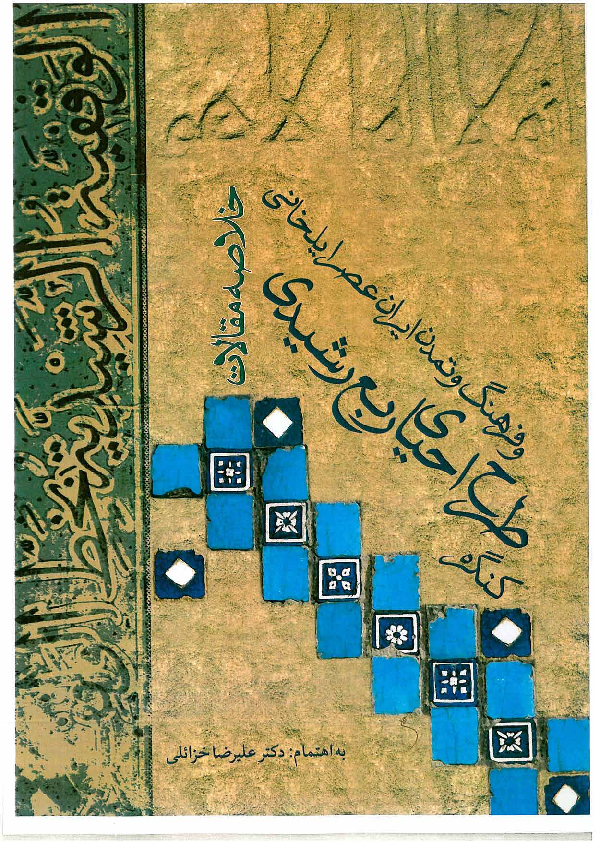 الوقفیة الرشیدیة بخط
خلاصه مقالات
کنگره
طرح احیای ربع رشیدی
و فرهنگ و تمدن ایران عصر ایلخانی
به اهتمام: دکتر علیرضا خزائلی